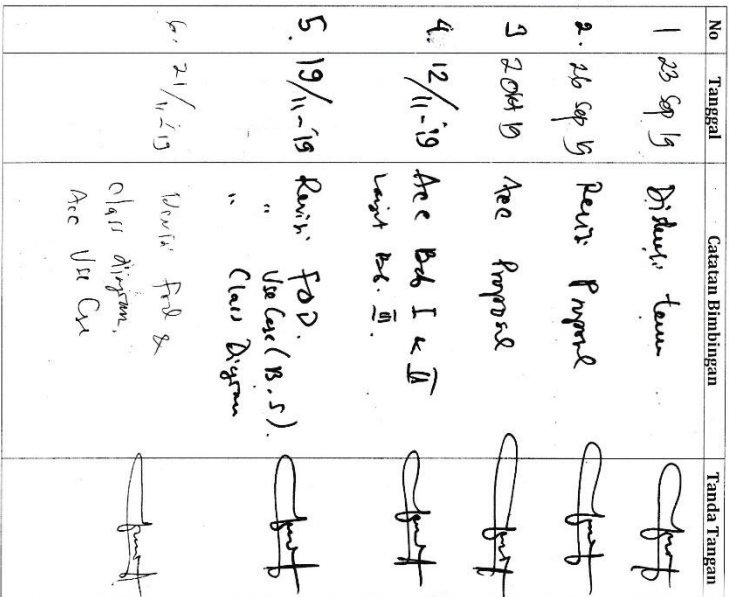 No Tanggal Catatan Bimbingan Tanda Tangan
1 23 Sep 19 Diskusi
2. 26 Sep 19 Revisi Proposal
3 2 Okt 19 Acc Proposal
4. 12/11-'19 Acc Bab I & II
Lanjut Bab. III.
5. 19/11-'19 Revisi FOD.
" Use Case (B.S).
" Class Diagram
6. 21/11-'19 &
Class diagram,
Acc Use Cse